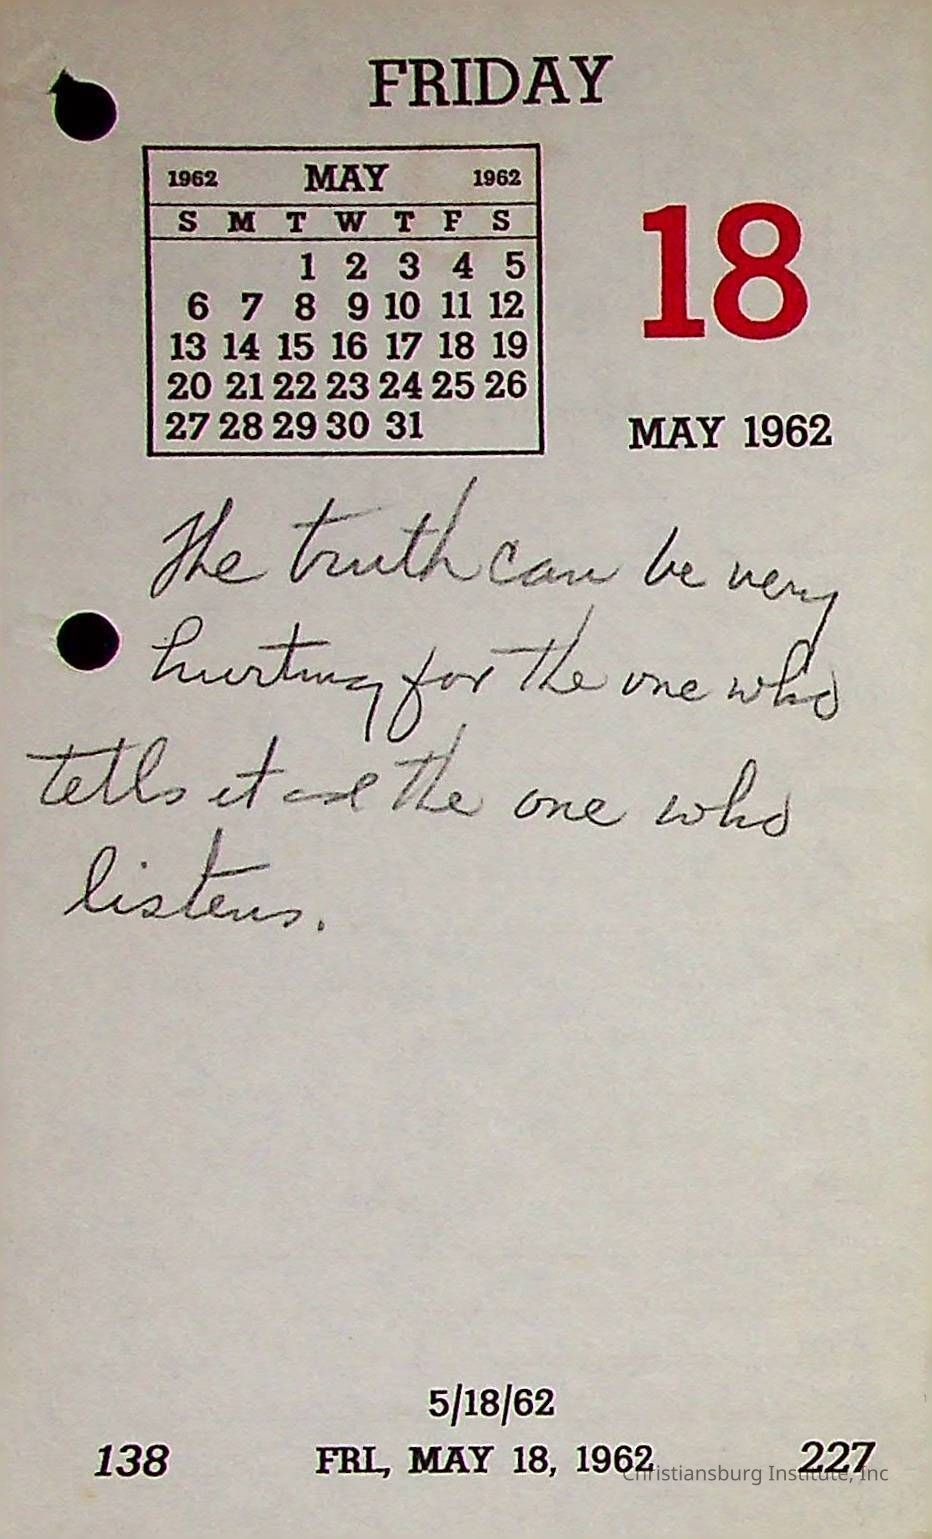 FRIDAY
1962 MAY 1962
S M T W T F S
1 2 3 4 5
6 7 8 9 10 11 12
13 14 15 16 17 18 19
20 21 22 23 24 25 26
27 28 29 30 31
18
MAY 1962
The truth can be very
hurting for the one who
tells it the one who
listens.
5/18/62
138 FRI, MAY 18, 1962 227
Christiansburg Institute, Inc